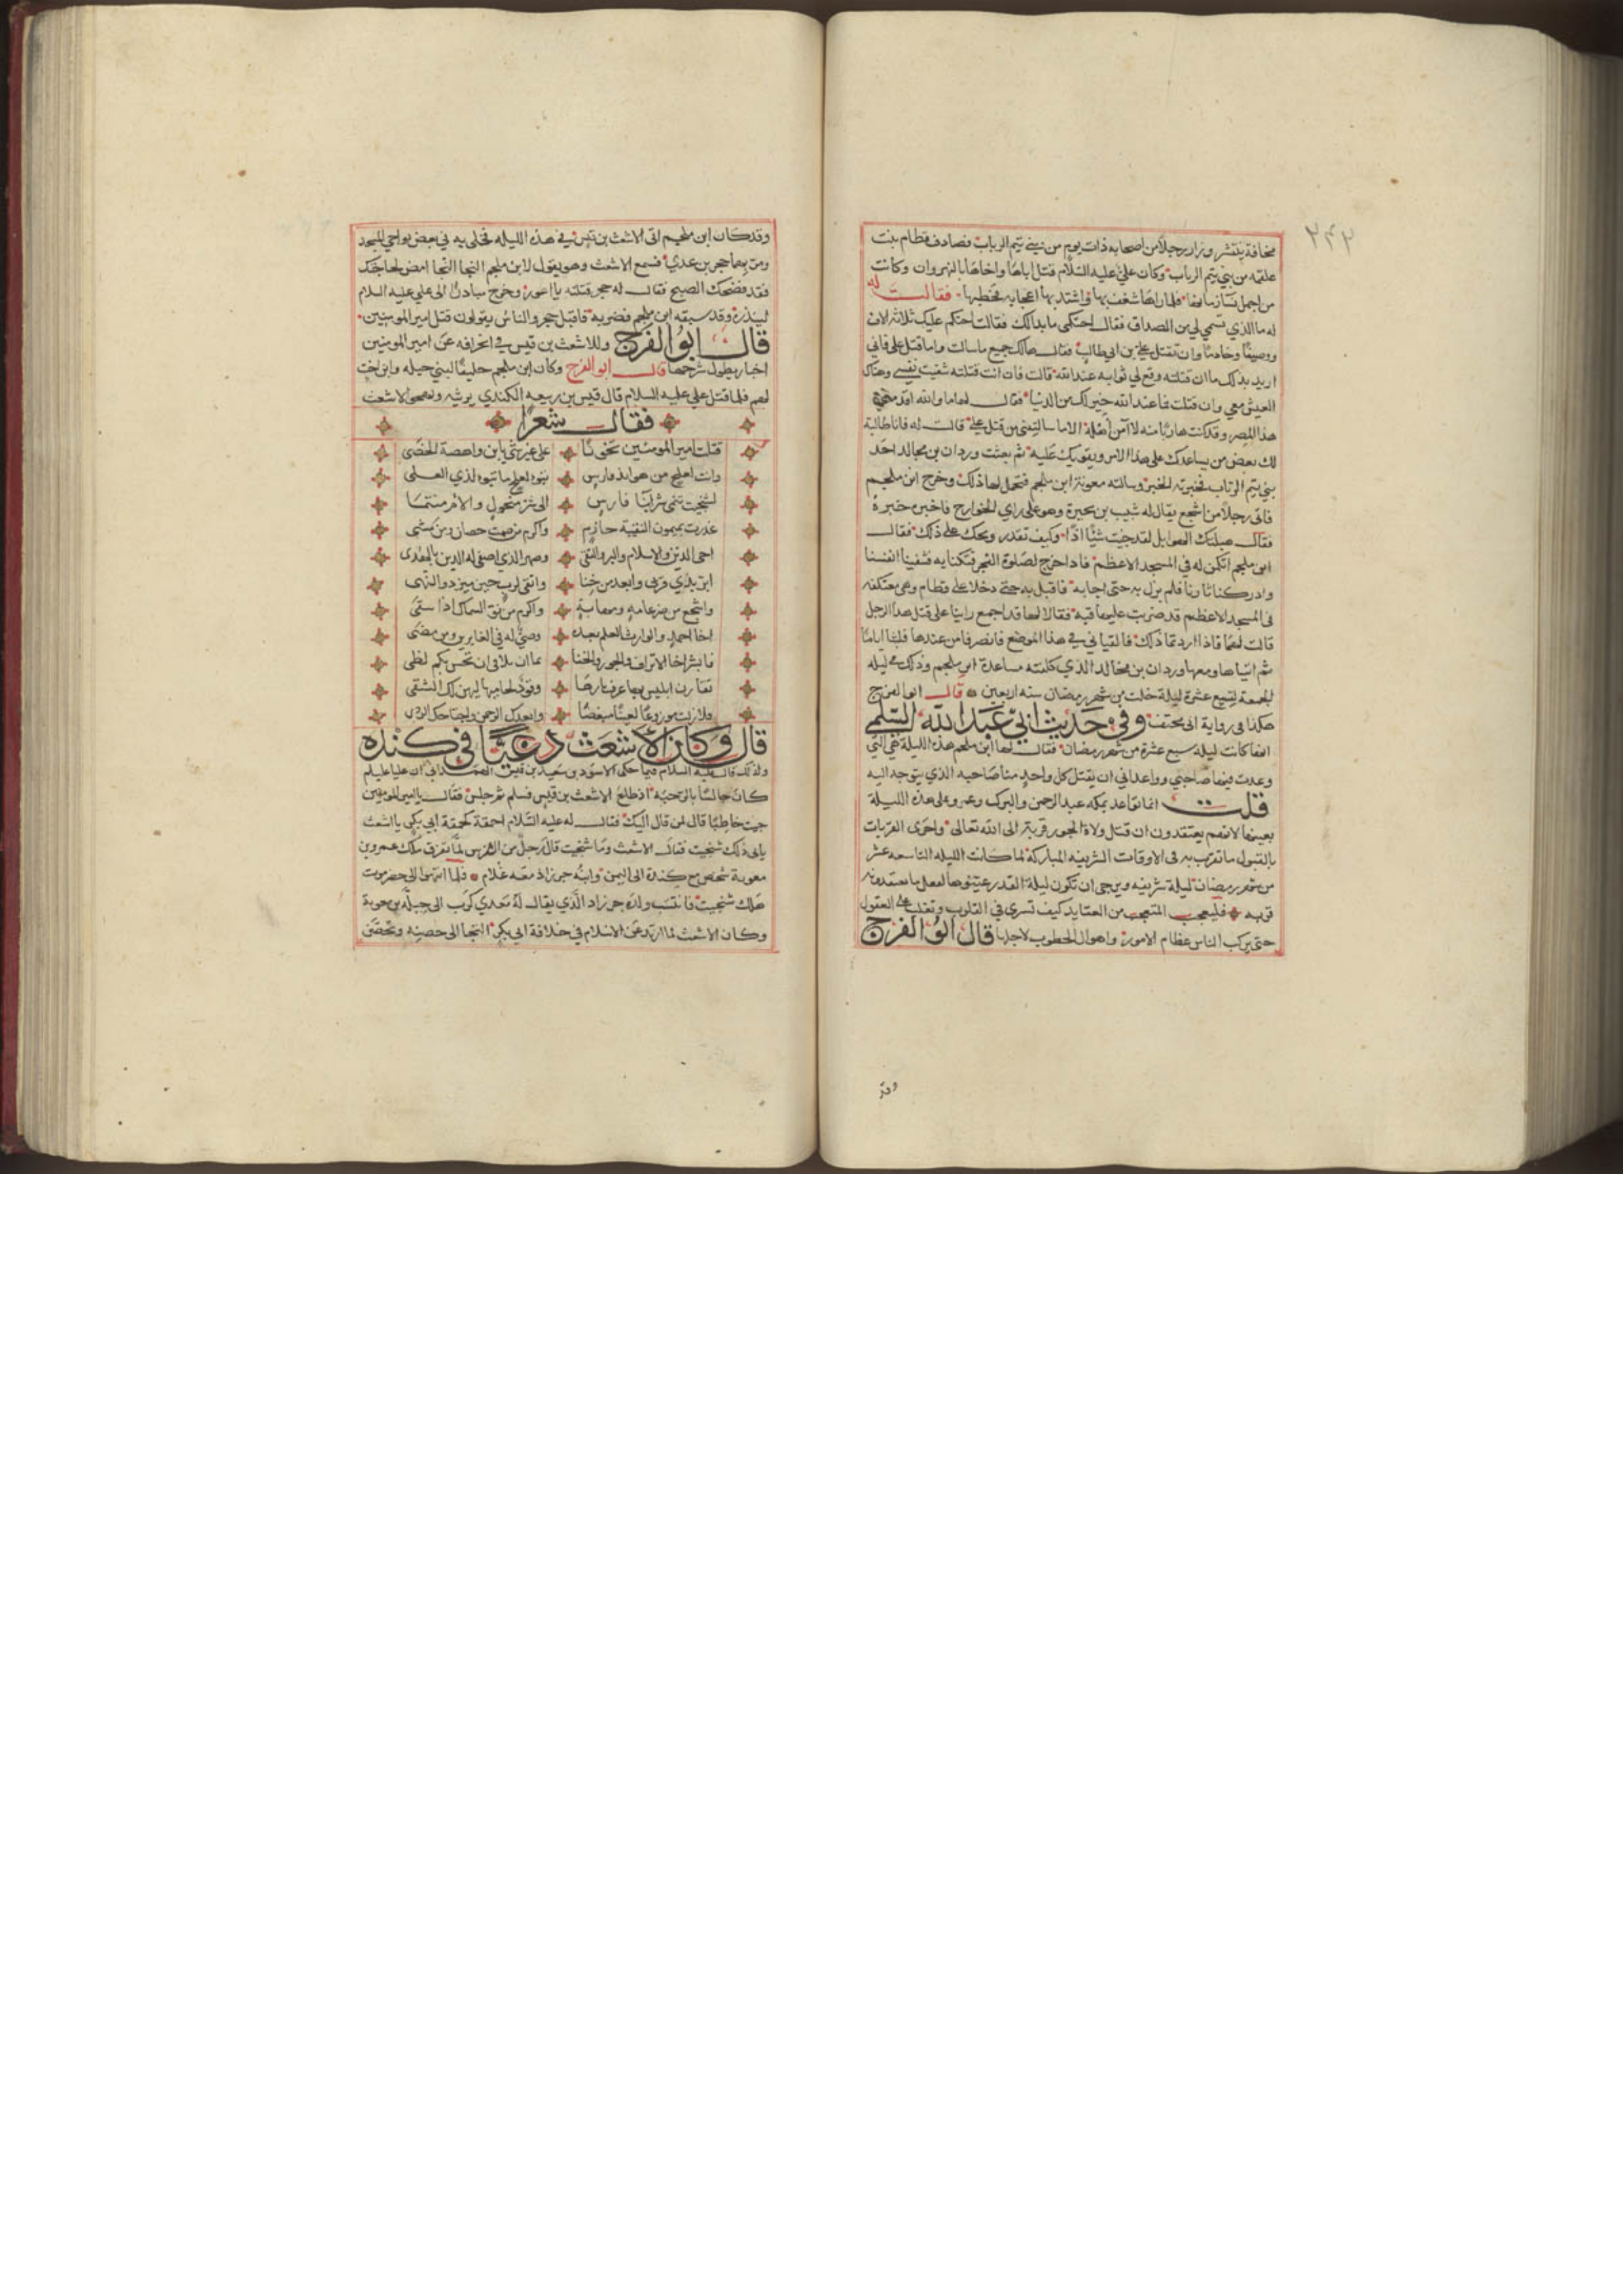 ٢٤٢
مخافة ينتشر وزار رجلا من اصحابه ذات يوم من بني تيم الرباب فصادف قطام بنت
علقمه من بني تيم الرباب وكان علي عليه السلام قتل اباها واخاها بالنهروان وكانت
من اجمل نساء زمانها فلما راها شغف بها واشتد بها اعجابه فخطبها فقالت له
له ما الذي تسمي لي من الصداق فقال احتكمي ما بدا لك فقالت احتكم عليك ثلاثة الاف
ووصيفا وخادما وان تقتل علي بن ابي طالب فقال لك جميع ما سالت واما قتل علي فاني
اريد بذلك ما ان قتلته وقع لي ثوابه عند الله قالت فان انت قتلته شفيت نفسي وهناك
العيش معي وان قتلت فما عند الله خير لك من الدنيا فقال لها اما والله اقدمني
هذا المصر وقد كنت هاربا منه لا آمن اهله الا ما سالتيني من قتل علي قالت له فانا طالبة
لك بعض من يساعدك على هذا الامر ويقويك عليه ثم بعثت وردان بن مجالد احد
بني تيم الرباب فخبرته الخبر وسالته معونة ابن ملجم فتحمل لها ذلك وخرج ابن ملجم
فاتى رجلا من اشجع يقال له شبيب بن بحيرة وهو على راي الخوارج فاخبره خبره
فقال هبلتك الهوابل لقد جيت شيئا ادا وكيف تقدر ويحك على ذلك فقال
ابن ملجم اتكمن له في المسجد الاعظم فاذا خرج لصلوة الفجر فتكنا به فشفينا انفسنا
وادركنا ثارنا فلم يزل به حتى اجابه فاقبل به حتى دخلا على قطام وهي معتكفه
في المسجد الاعظم قد ضربت عليها قبه فقالا لها قد اجمع راينا على قتل هذا الرجل
قالت لهما فاذا اردتما ذلك فالقياني في هذا الموضع فانصرفا من عندها فلبثا اياما
ثم اتياها ومعهما وردان بن مجالد الذي كلفته مساعدة ابن ملجم وذلك في ليله
الجمعه لتسع عشرة ليلة خلت من شهر رمضان سنه اربعين قال ابو الفرج
هكذا في رواية ابي مخنف وفي حديث ابي عبد الله السلمي
انها كانت ليلة سبع عشرة من شهر رمضان فقال لها ابن ملجم هذه الليلة هي التي
وعدت فيها صاحبي وواعداني ان يقتل كل واحد منا صاحبه الذي يتوجه اليه
قلت انما تواعد بمكه عبد الرحمن والبرك وعمرو على هذه الليلة
بعينها لانهم يعتقدون ان قتل ولاة الجور قربة الى الله تعالى واحرى القربات
بالقبول ما تقرب به في الاوقات الشريفه المباركة لما كانت الليله التاسعه عشر
من شهر رمضان ليلة شريفه ويرجى ان تكون ليلة القدر عينوها لفعل ما يعتقدونه
قربه فليعجب المتعجب من العقايد كيف تسري في القلوب وتغلب على العقول
حتى يركب الناس عظام الامور واهوال الخطوب لاجلها قال ابو الفرج
وقد
وقد كان ابن ملجم اتى الاشعث بن قيس في هذه الليله فخلى به في بعض نواحي المسجد
ومر بهما حجر بن عدي فسمع الاشعث وهو يقول لابن ملجم النجا النجا امض لحاجتك
فقد فضحك الصبح فقال له حجر قتلته يا اعور وخرج مبادرا الى علي عليه السلام
لينذره وقد سبقه ابن ملجم فضربه فاقبل حجر والناس يقولون قتل امير المومنين
قال ابو الفرج وللاشعث بن قيس في انحرافه عن امير المومنين
اخبار يطول شرحها قال ابو الفرج وكان ابن ملجم حليفا لبني جبله وابن اخت
لهم فلما قتل علي عليه السلام قال قيس بن ربيعه الكندي يرثيه ويهجو الاشعث
فقال شعرا
قتلت امير المومنين تخونا على غير شي يابن واهصة الخصى
وانت لعلج من هرابذ فارس تبوء لعلج ما تبوء لذي العلى
لشخيت تنمى شرابنا فارس الى شر منحول والام منتما
غدرت بميمون النقيبة حازم واكرم من ضمت حصان ومن مشى
اخي الدين والاسلام والبر والتقى وصهر الذي اصفى له الدين بالهدى
واتقى لرب حين ميز ذو النهى
واشجع من ضرغامه ومهابة واكرم من نوء السماك اذا سقى
اخا احمد والوارث العلم بعده وصي له في الغابرين ومن مضى
فابشر اخا الاتراف والجور والخنا بما ان تلاقي ان تحس بكم لظى
تقارن ابليس بها عرف نارها وقود لحاميها ليهن لك الشقى
ولا زيت موزوعا لعينا مبغضا وابعدك الرحمن واجتاحك الردى
قال وكان الاشعث دعيا في كنده
ولذلك قال عليه السلام فيما حكى الاسود بن سعيد بن قيس الهمداني ان عليا عليلم
كان جالسا بالرحبه اذ طلع الاشعث بن قيس فسلم ثم جلس فقال يا امير المومنين
جيت خاطبا قال لمن قال اليك فقال له عليه السلام احمقة كحمقة ابي بكر يا اشعث
يابى ذلك شخيت فقال الاشعث وما شخيت قال رجل من الفرس لما تفرق ملك عمرو بن
معوية شخص مع كندة الى اليمن وابنه جرزاد معه غلام فلما انتهوا الى حضرموت
هلك شخيت فانتسب ولده جرزاد الذي يقال له معدي كرب الى جبلة بن معوية
وكان الاشعث لما ارتد عن الاسلام في خلافة ابي بكر التجا الى حصنه وتحصن